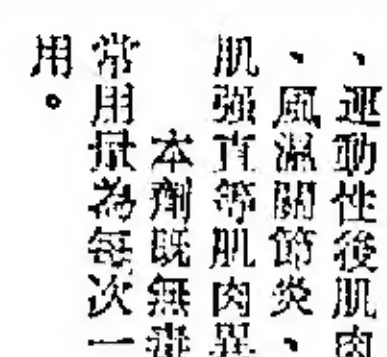 、運動性後肌肉
、風溫關節炎、
肌强直等肌肉異
本劑既無毒
常用量為每次一
用。